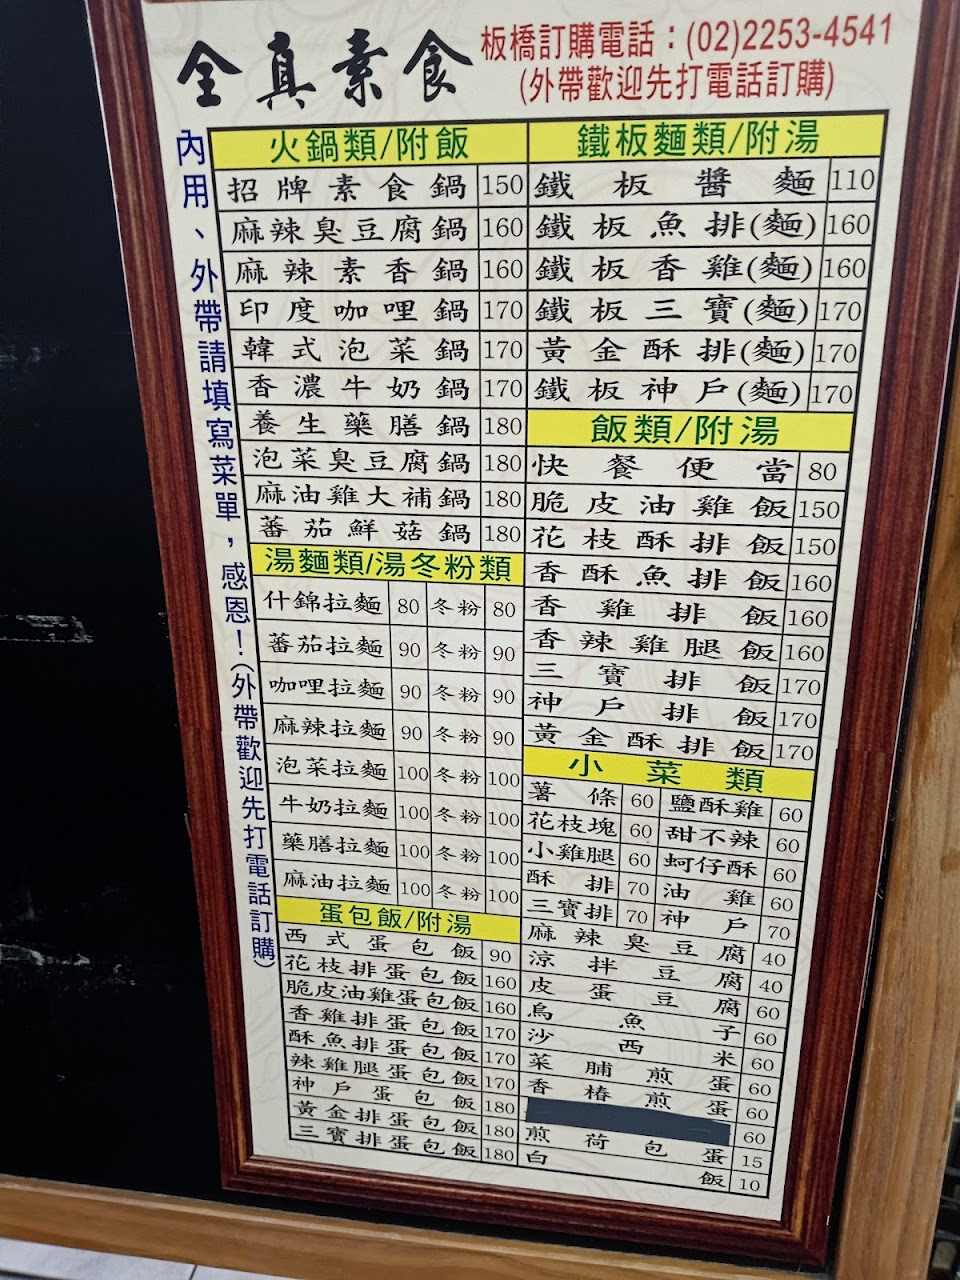 全真素食
板橋訂購電話：(02)2253-4541
(外帶歡迎先打電話訂購)
內用、外帶請填寫菜單，感恩！(外帶歡迎先打電話訂購)
火鍋類/附飯
招牌素食鍋 150
麻辣臭豆腐鍋 160
麻辣素香鍋 160
印度咖哩鍋 170
韓式泡菜鍋 170
香濃牛奶鍋 170
養生藥膳鍋 180
泡菜臭豆腐鍋 180
麻油雞大補鍋 180
蕃茄鮮菇鍋 180
湯麵類/湯冬粉類
什錦拉麵 80 冬粉 80
蕃茄拉麵 90 冬粉 90
咖哩拉麵 90 冬粉 90
麻辣拉麵 90 冬粉 90
泡菜拉麵 100 冬粉 100
牛奶拉麵 100 冬粉 100
藥膳拉麵 100 冬粉 100
麻油拉麵 100 冬粉 100
蛋包飯/附湯
西式蛋包飯 90
花枝排蛋包飯 160
脆皮油雞蛋包飯 160
香雞排蛋包飯 170
酥魚排蛋包飯 170
辣雞腿蛋包飯 170
神戶蛋包飯 180
黃金排蛋包飯 180
三寶排蛋包飯 180
鐵板麵類/附湯
鐵板醬麵 110
鐵板魚排(麵) 160
鐵板香雞(麵) 160
鐵板三寶(麵) 170
黃金酥排(麵) 170
鐵板神戶(麵) 170
飯類/附湯
快餐便當 80
脆皮油雞飯 150
花枝酥排飯 150
香酥魚排飯 160
香雞排飯 160
香辣雞腿飯 160
三寶排飯 170
神戶排飯 170
黃金酥排飯 170
小菜類
薯條 60 鹽酥雞 60
花枝塊 60 甜不辣 60
小雞腿 60 蚵仔酥 60
酥排 70 油雞 60
三寶排 70 神戶 70
麻辣臭豆腐 40
涼拌豆腐 40
皮蛋豆腐 60
烏魚子 60
沙西米 60
菜脯煎蛋 60
香椿煎蛋 60
60
煎荷包蛋 15
白飯 10